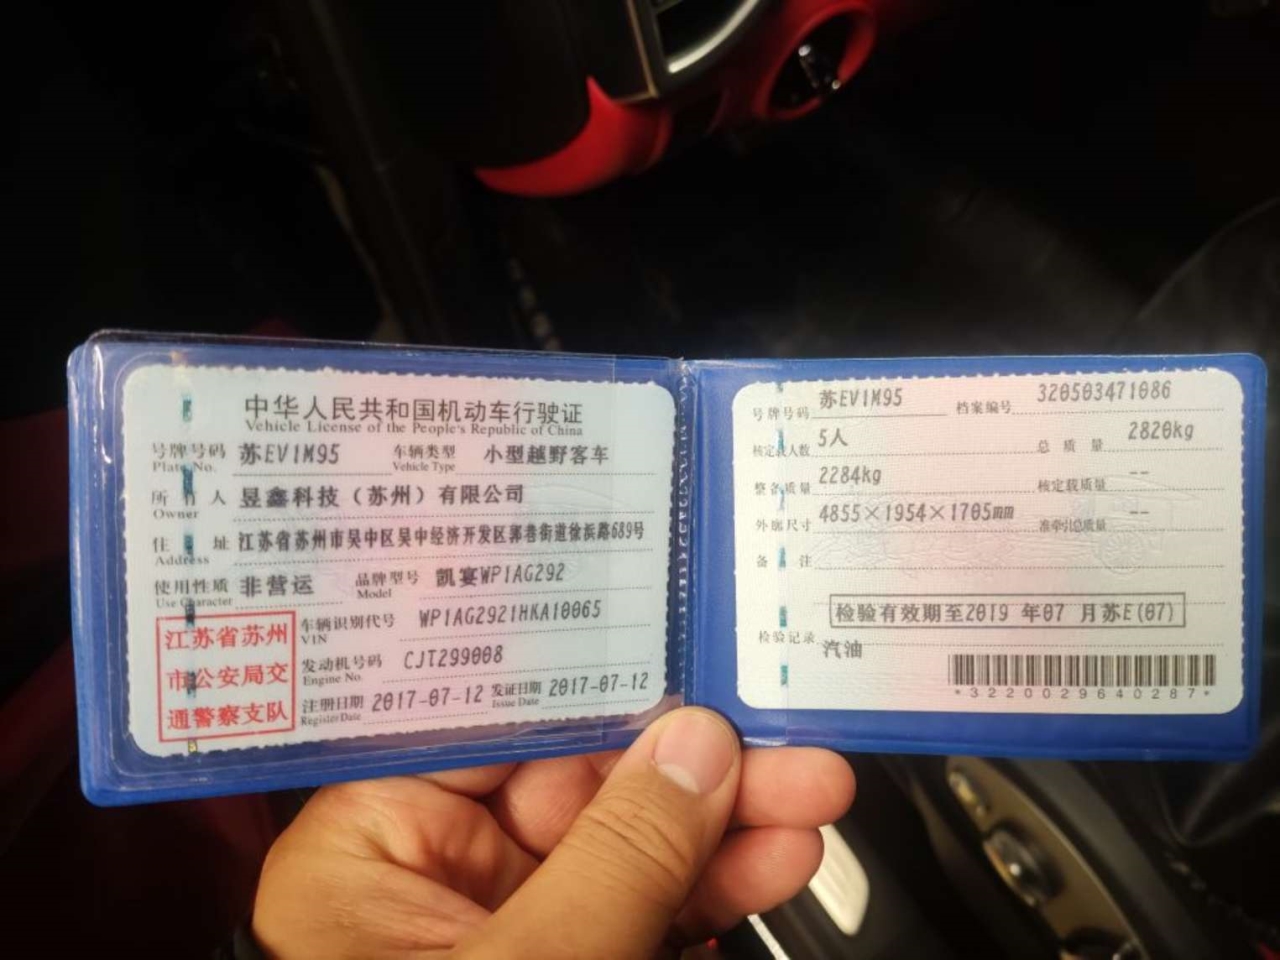 中华人民共和国机动车行驶证
Vehicle License of the People's Republic of China
号牌号码 苏EV1M95 车辆类型 小型越野客车
Plate No. Vehicle Type
所有人 昱鑫科技（苏州）有限公司
Owner
住址 江苏省苏州市吴中区吴中经济开发区郭巷街道徐浜路689号
Address
使用性质 非营运 品牌型号 凯宴WP1AG292
Use Character Model
江苏省苏州
市公安局交
通警察支队
车辆识别代号 WP1AG2921HKA10065
VIN
发动机号码 CJT299008
Engine No.
注册日期 2017-07-12 发证日期 2017-07-12
Register Date Issue Date
号牌号码 苏EV1M95 档案编号 320503471086
核定载人数 5人 总质量 2820kg
整备质量 2284kg 核定载质量 --
外廓尺寸 4855×1954×1705mm 准牵引总质量 --
备注
检验有效期至2019 年07 月苏E(07)
检验记录
汽油
*3220029640287*